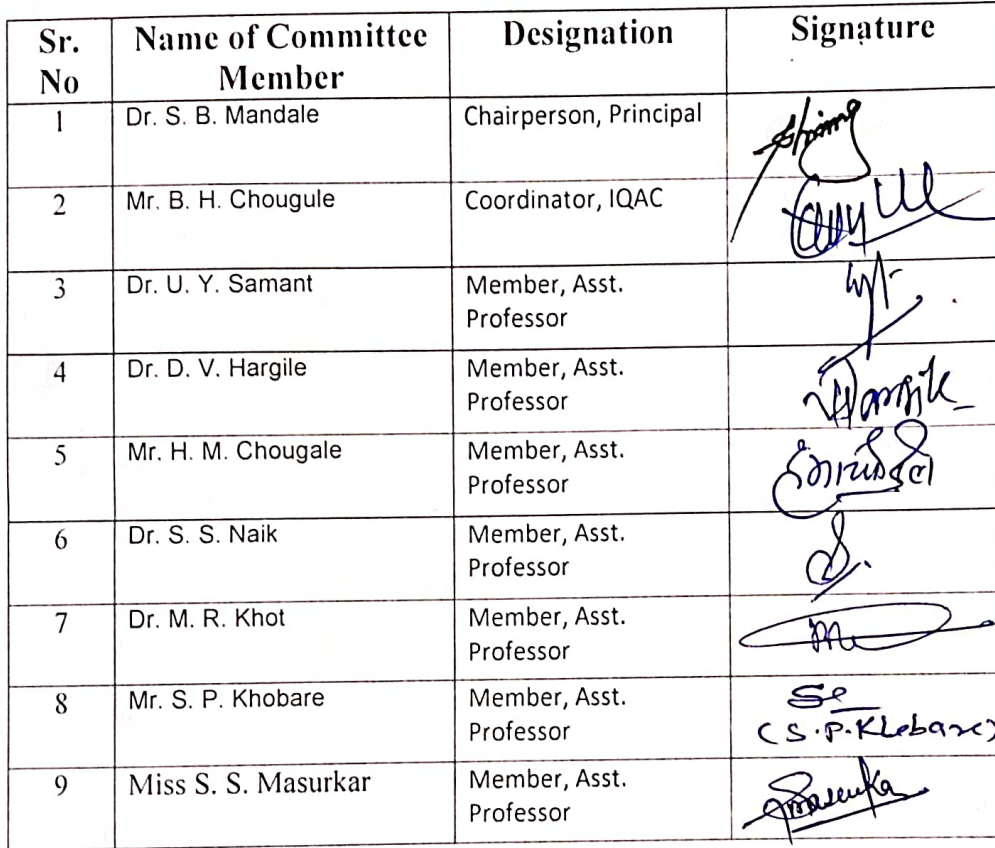 Sr. No Name of Committee Member Designation Signature
1 Dr. S. B. Mandale Chairperson, Principal
2 Mr. B. H. Chougule Coordinator, IQAC
3 Dr. U. Y. Samant Member, Asst. Professor
4 Dr. D. V. Hargile Member, Asst. Professor
5 Mr. H. M. Chougale Member, Asst. Professor
6 Dr. S. S. Naik Member, Asst. Professor
7 Dr. M. R. Khot Member, Asst. Professor
8 Mr. S. P. Khobare Member, Asst. Professor
(S.P.Khobare)
9 Miss S. S. Masurkar Member, Asst. Professor